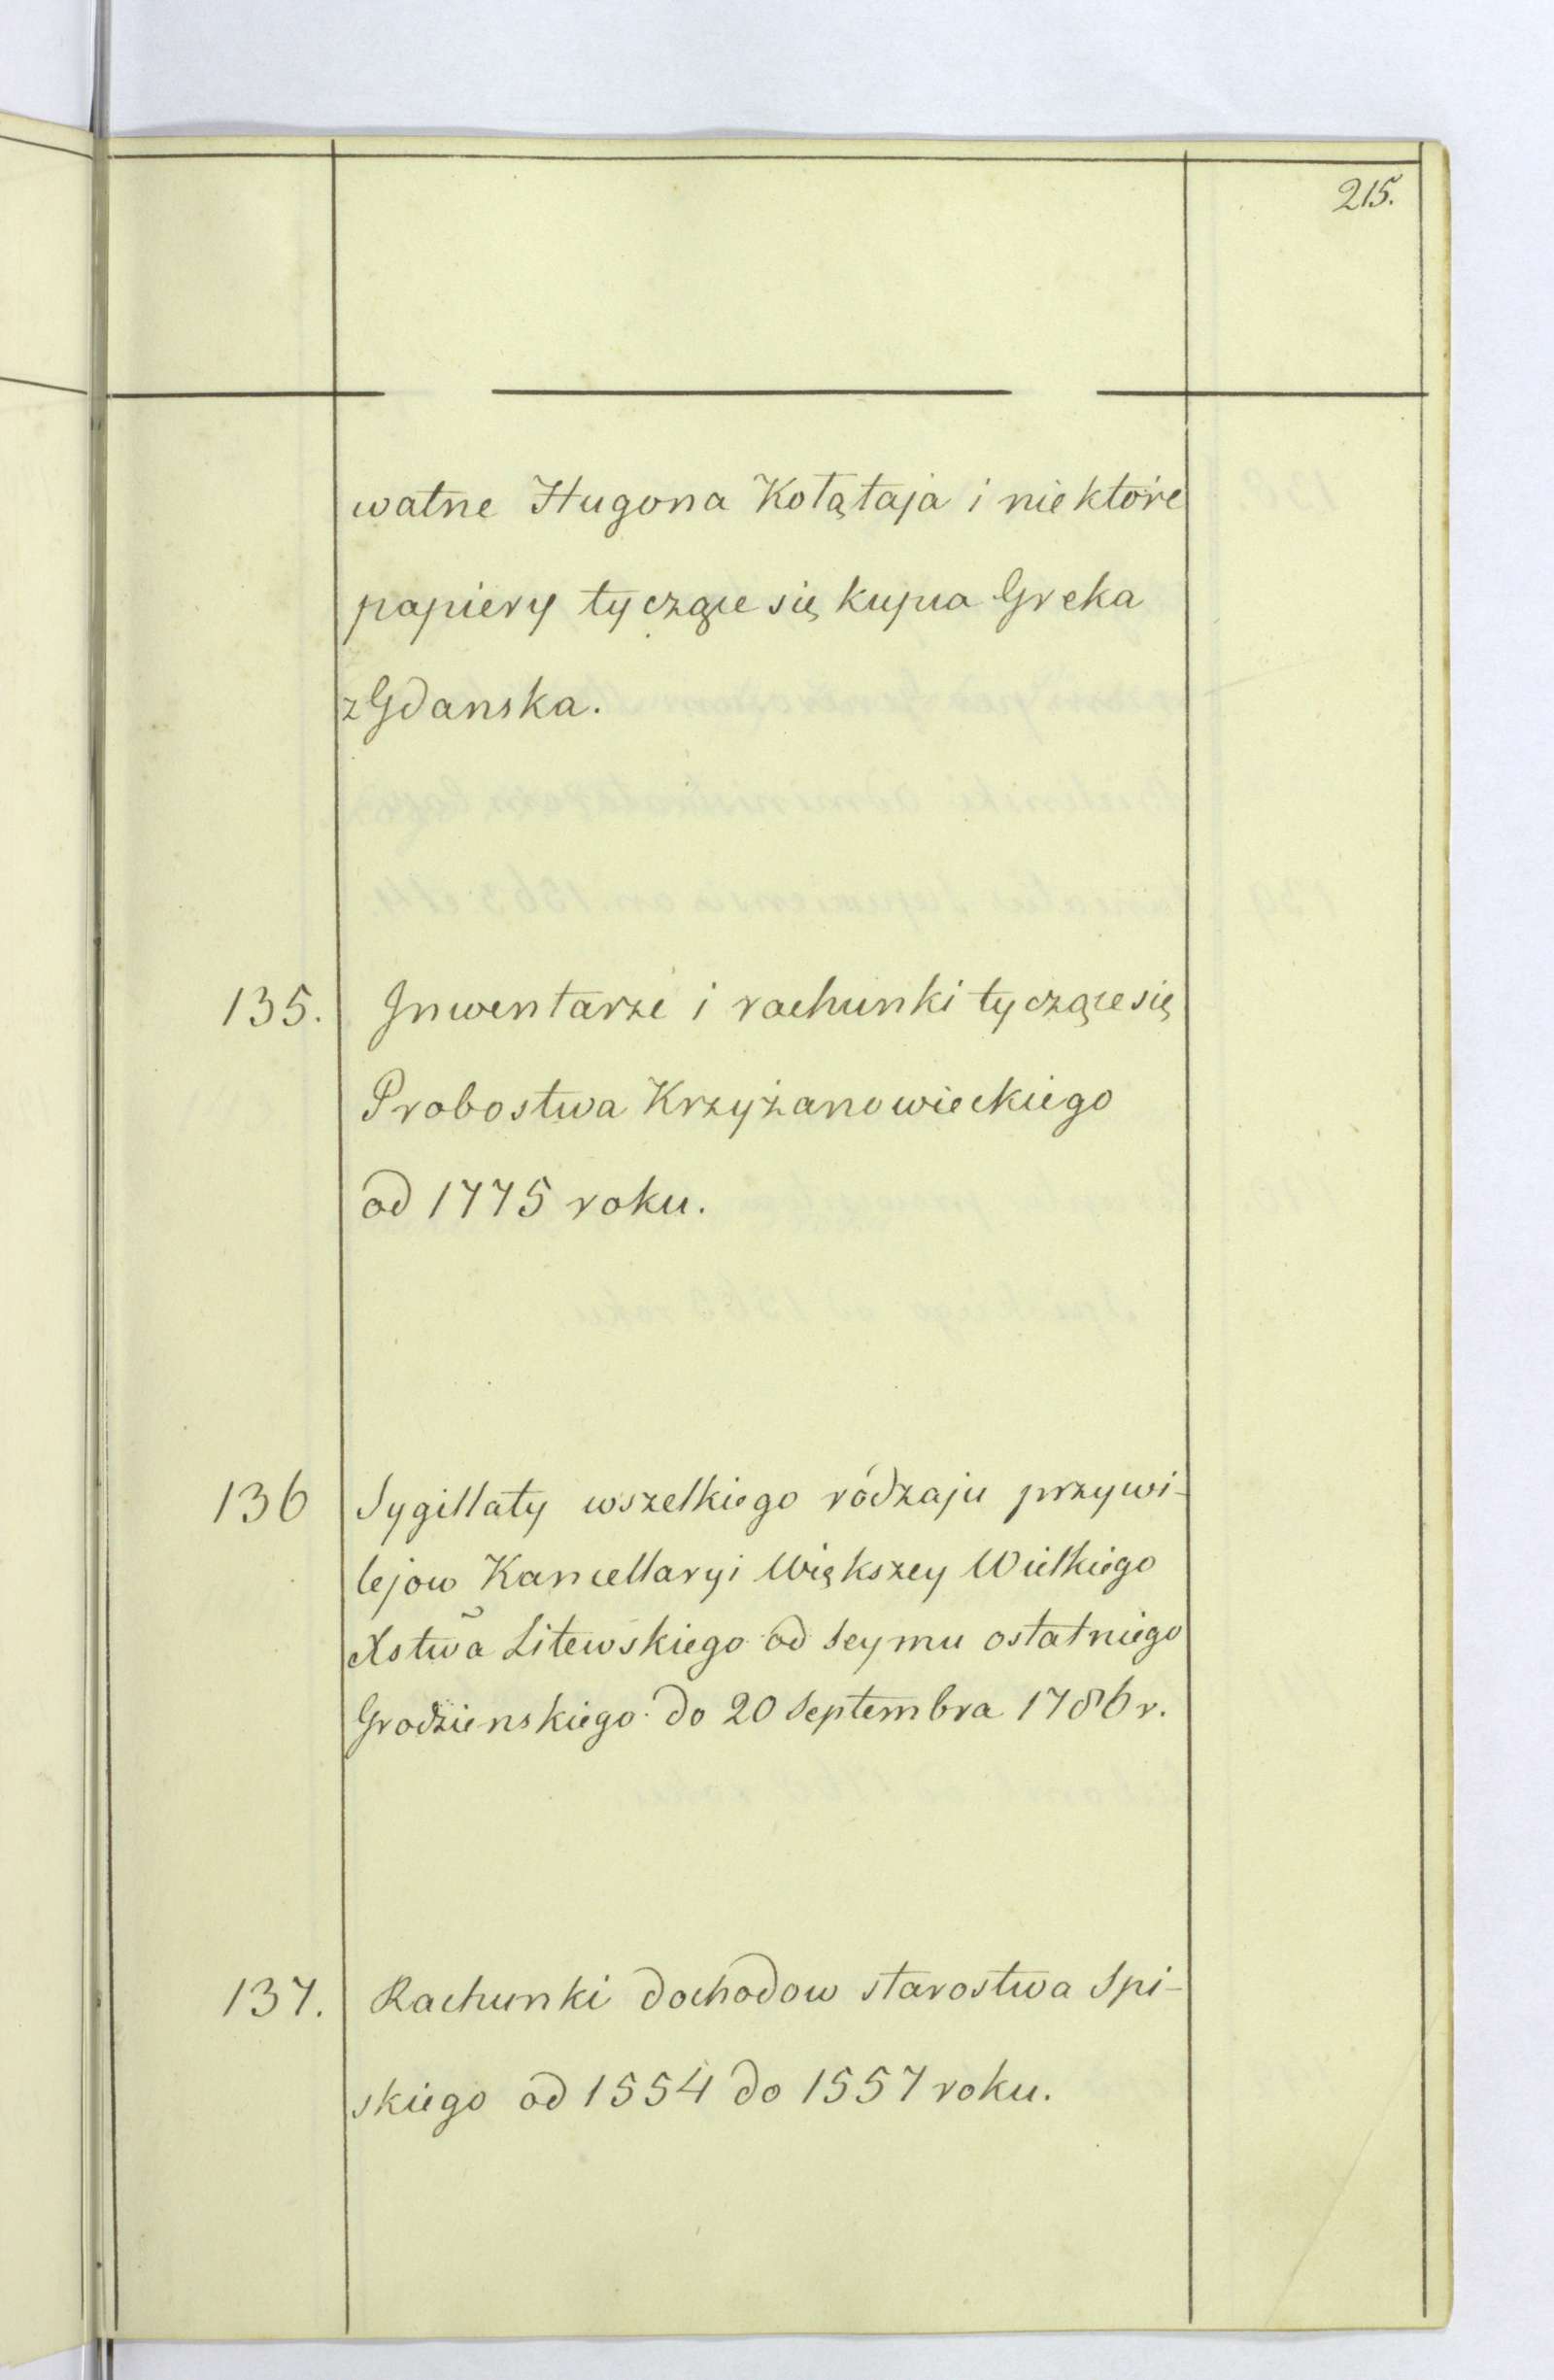 215.
watne Hugona Kołątaja i niektóre
papiery tyczące się kupca Greka
z Gdanska.
135. Inwentarze i rachunki tyczące się
Probostwa Krzyżanowieckiego
od 1775 roku.
136 Sygillaty wszelkiego ródzaju przywi-
lejow Kancellaryi Większey Wielkiego
Xstwa Litewskiego od Seymu ostatniego
Grodzienskiego do 20 Septembra 1786 r.
137. Rachunki dochodow starostwa Spi-
skiego od 1554 do 1557 roku.